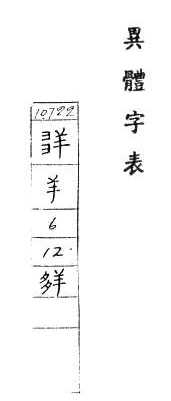 異體字表
10722
羊
6
12